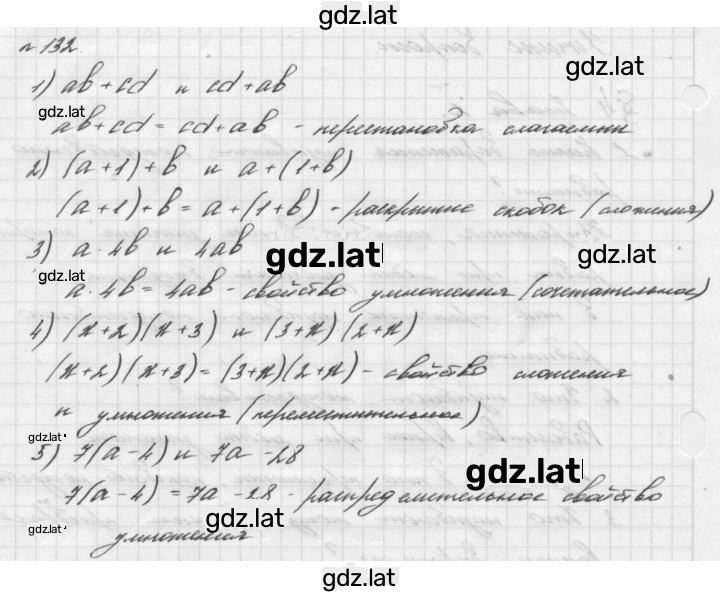 gdz.lat
№ 132.
gdz.lat
1) ab+cd и cd+ab
gdz.lat
ab+cd = cd+ab - перестановка слагаемых
2) (a+1)+b и a+(1+b)
(a+1)+b = a+(1+b) - раскрытие скобок (сложения)
3) a·4b и 4ab
gdz.lat gdz.lat
gdz.lat
a·4b = 4ab - свойство умножения (сочетательное)
4) (x+2)(x+3) и (3+x)·(2+x)
(x+2)(x+3) = (3+x)(2+x) - свойство сложения
и умножения (переместительное)
gdz.lat
5) 7(a-4) и 7a-28
gdz.lat
7(a-4) = 7a-28 - распределительное свойство
gdz.lat
gdz.lat
умножения
gdz.lat